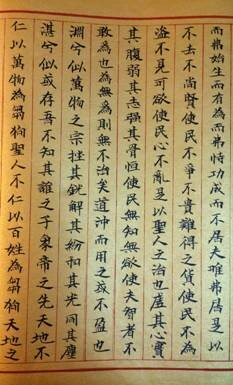 而弗始生而有為而弗恃功成而不居夫唯弗居是以
不去不尚賢使民不爭不貴難得之貨使民不為
盜不見可欲使民心不亂是以聖人之治也虛其心實
其腹弱其志強其骨恒使民無知無欲使夫智者不
敢為也為無為則無不治矣道沖而用之或不盈也
淵兮似萬物之宗挫其銳解其紛和其光同其塵
湛兮似或存吾不知其誰之子象帝之先天地不
仁以萬物為芻狗聖人不仁以百姓為芻狗天地之